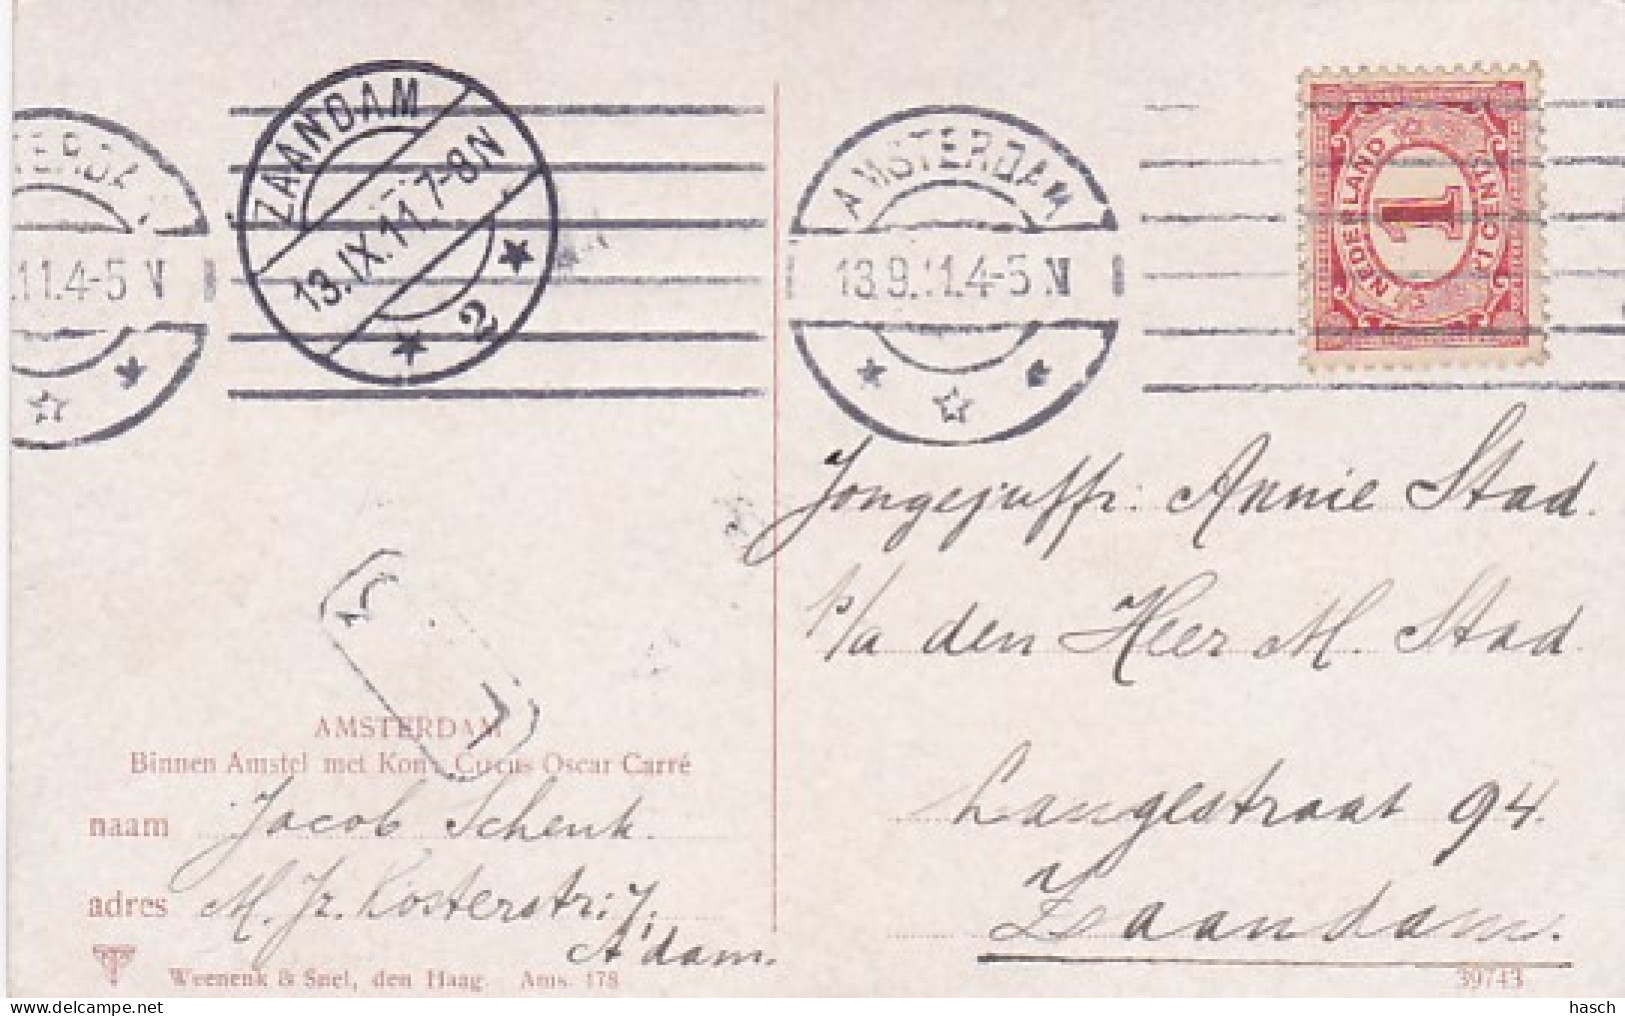 AMSTERDAM
13.9.11.4-5 N
TERDA
.11.4-5 N
ZAANDAM
13.IX.11.7-8N
2
NEDERLAND
1
CENT
Jongejuffr. Annie Stad.
p/a den Heer M. Stad
Langestraat 94.
Zaandam.
39743
AMSTERDAM
Binnen Amstel met Kon. Circus Oscar Carré
naam Jacob Schenk.
adres M. Jz. Kosterstr: 7.
A'dam.
Weenenk & Snel, den Haag. Ams. 178
hasch